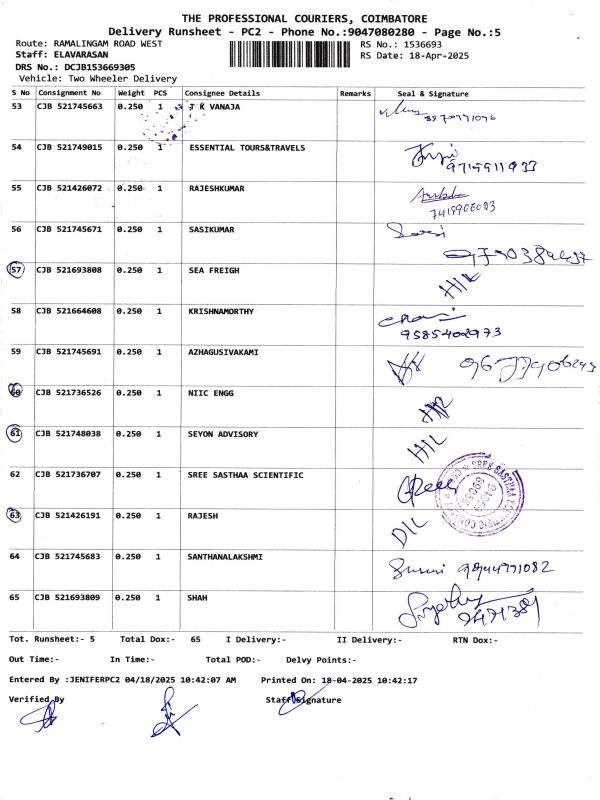 THE PROFESSIONAL COURIERS, COIMBATORE
Delivery Runsheet - PC2 - Phone No.:9047080280 - Page No.:5
Route: RAMALINGAM ROAD WEST RS No.: 1536693
Staff: ELAVARASAN RS Date: 18-Apr-2025
DRS No.: DCJB153669305
Vehicle: Two Wheeler Delivery
S No Consignment No Weight PCS Consignee Details Remarks Seal & Signature
53 CJB 521745663 0.250 1 T K VANAJA
54 CJB 521749015 0.250 1 ESSENTIAL TOURS&TRAVELS
55 CJB 521426072 0.250 1 RAJESHKUMAR
56 CJB 521745671 0.250 1 SASIKUMAR
57 CJB 521693808 0.250 1 SEA FREIGH
58 CJB 521664608 0.250 1 KRISHNAMORTHY
9585402973
59 CJB 521745691 0.250 1 AZHAGUSIVAKAMI
60 CJB 521736526 0.250 1 NIIC ENGG
61 CJB 521748038 0.250 1 SEYON ADVISORY HIL
62 CJB 521736707 0.250 1 SREE SASTHAA SCIENTIFIC
SREE SASTHAA SCIENTIFIC
63 CJB 521426191 0.250 1 RAJESH DIL
64 CJB 521745683 0.250 1 SANTHANALAKSHMI
65 CJB 521693809 0.250 1 SHAH
Tot. Runsheet:- 5 Total Dox:- 65 I Delivery:- II Delivery:- RTN Dox:-
Out Time:- In Time:- Total POD:- Delvy Points:-
Entered By :JENIFERPC2 04/18/2025 10:42:07 AM Printed On: 18-04-2025 10:42:17
Verified By Staff Signature